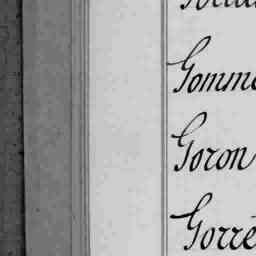 Gomm
Goron
Gorré